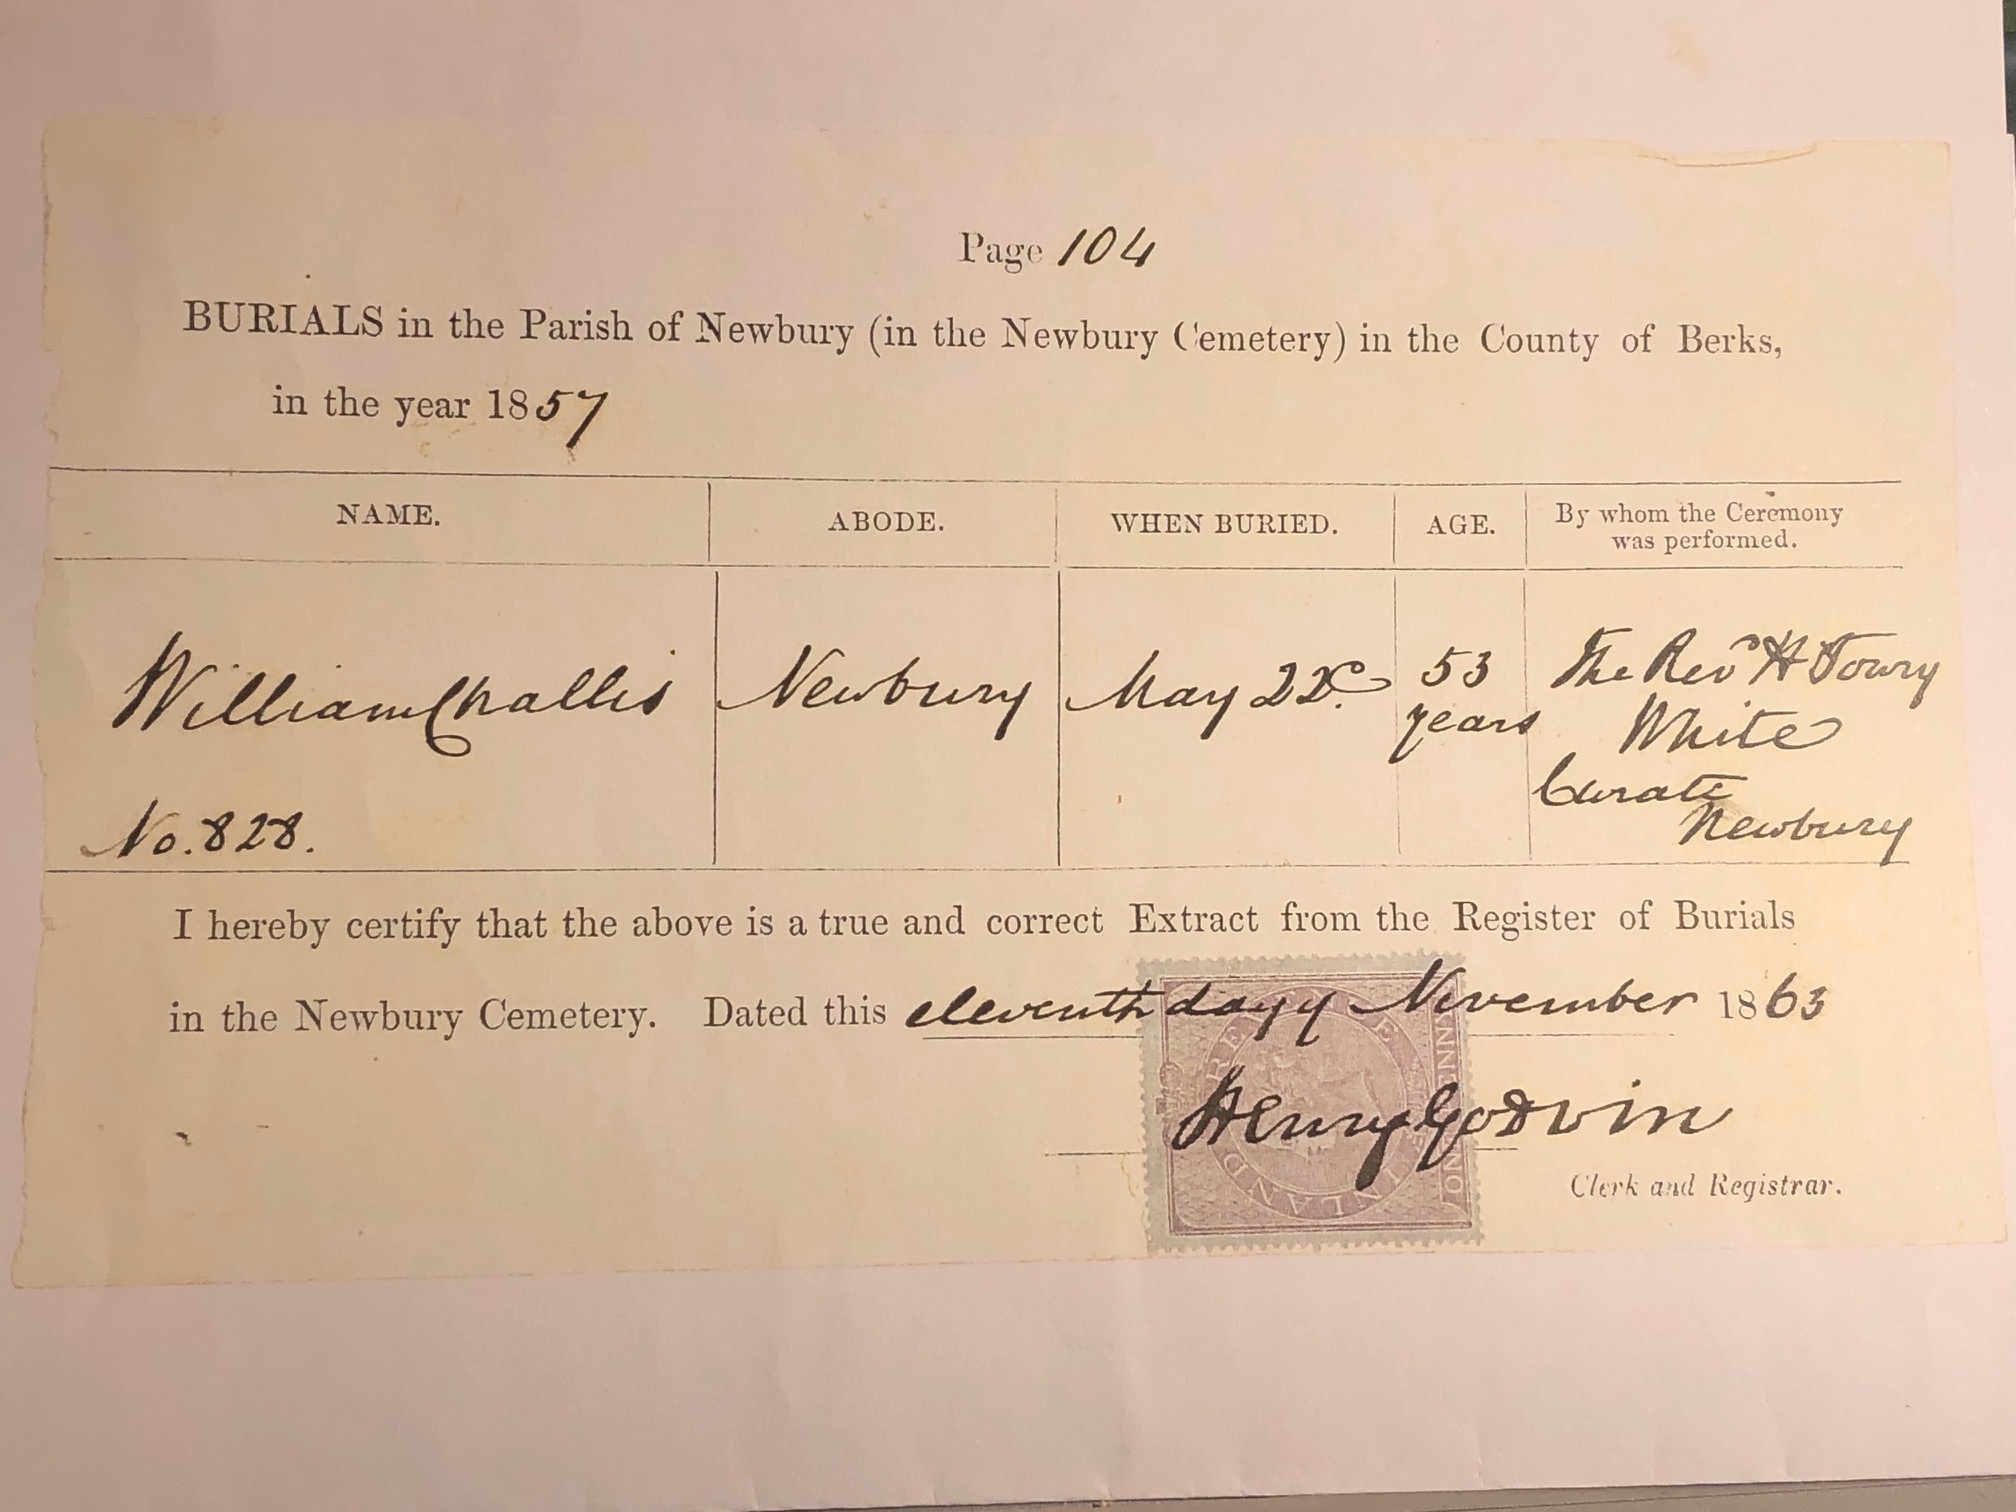 Page 104
BURIALS in the Parish of Newbury (in the Newbury Cemetery) in the County of Berks,
in the year 1857
NAME. ABODE. WHEN BURIED. AGE. By whom the Ceremony was performed.
William Challis Newbury May 22d. 53 years The Revd H Towry White Curate Newbury
No. 828.
I hereby certify that the above is a true and correct Extract from the Register of Burials
in the Newbury Cemetery. Dated this eleventh day of November 1863
Henry Godwin
Clerk and Registrar.
INLAND REVENUE
ONE PENNY